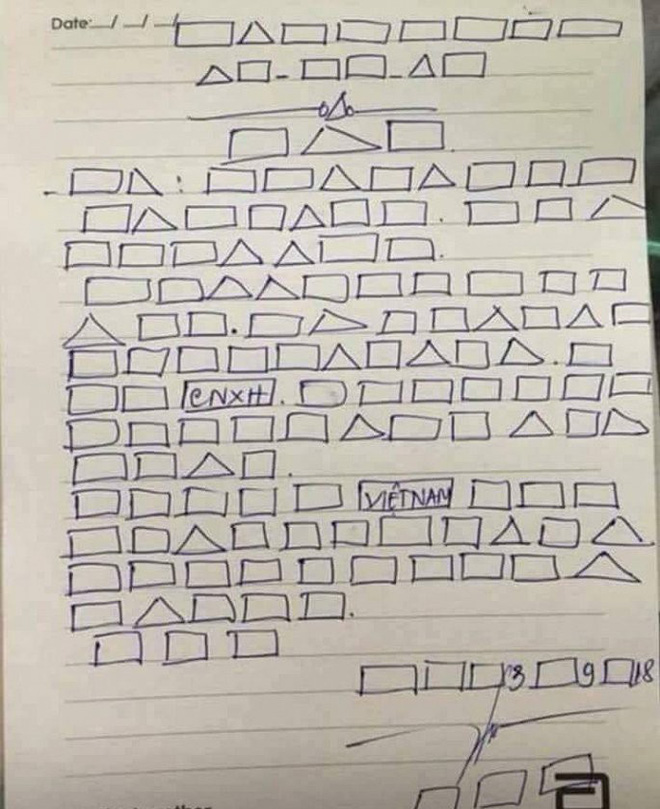 Date: __/__/__
□△□□□□□□
△□-□□-△□
□△□
-□△: □□△□△□□□
□△□□△□□. □□△
□□□△△□□.
□□△△□□□□□□
△□□.□△□□△□△□
□□□□□△□△□△.□
□□ CNXH.□□□□□□□
□□□□□△□□△□△
□□△□.
□□□□□ VIỆTNAM □□□
□□△□□□□□△□△
□□□□□□□□□△
□△□□□.
□□□
□□□3□9□18
□□□